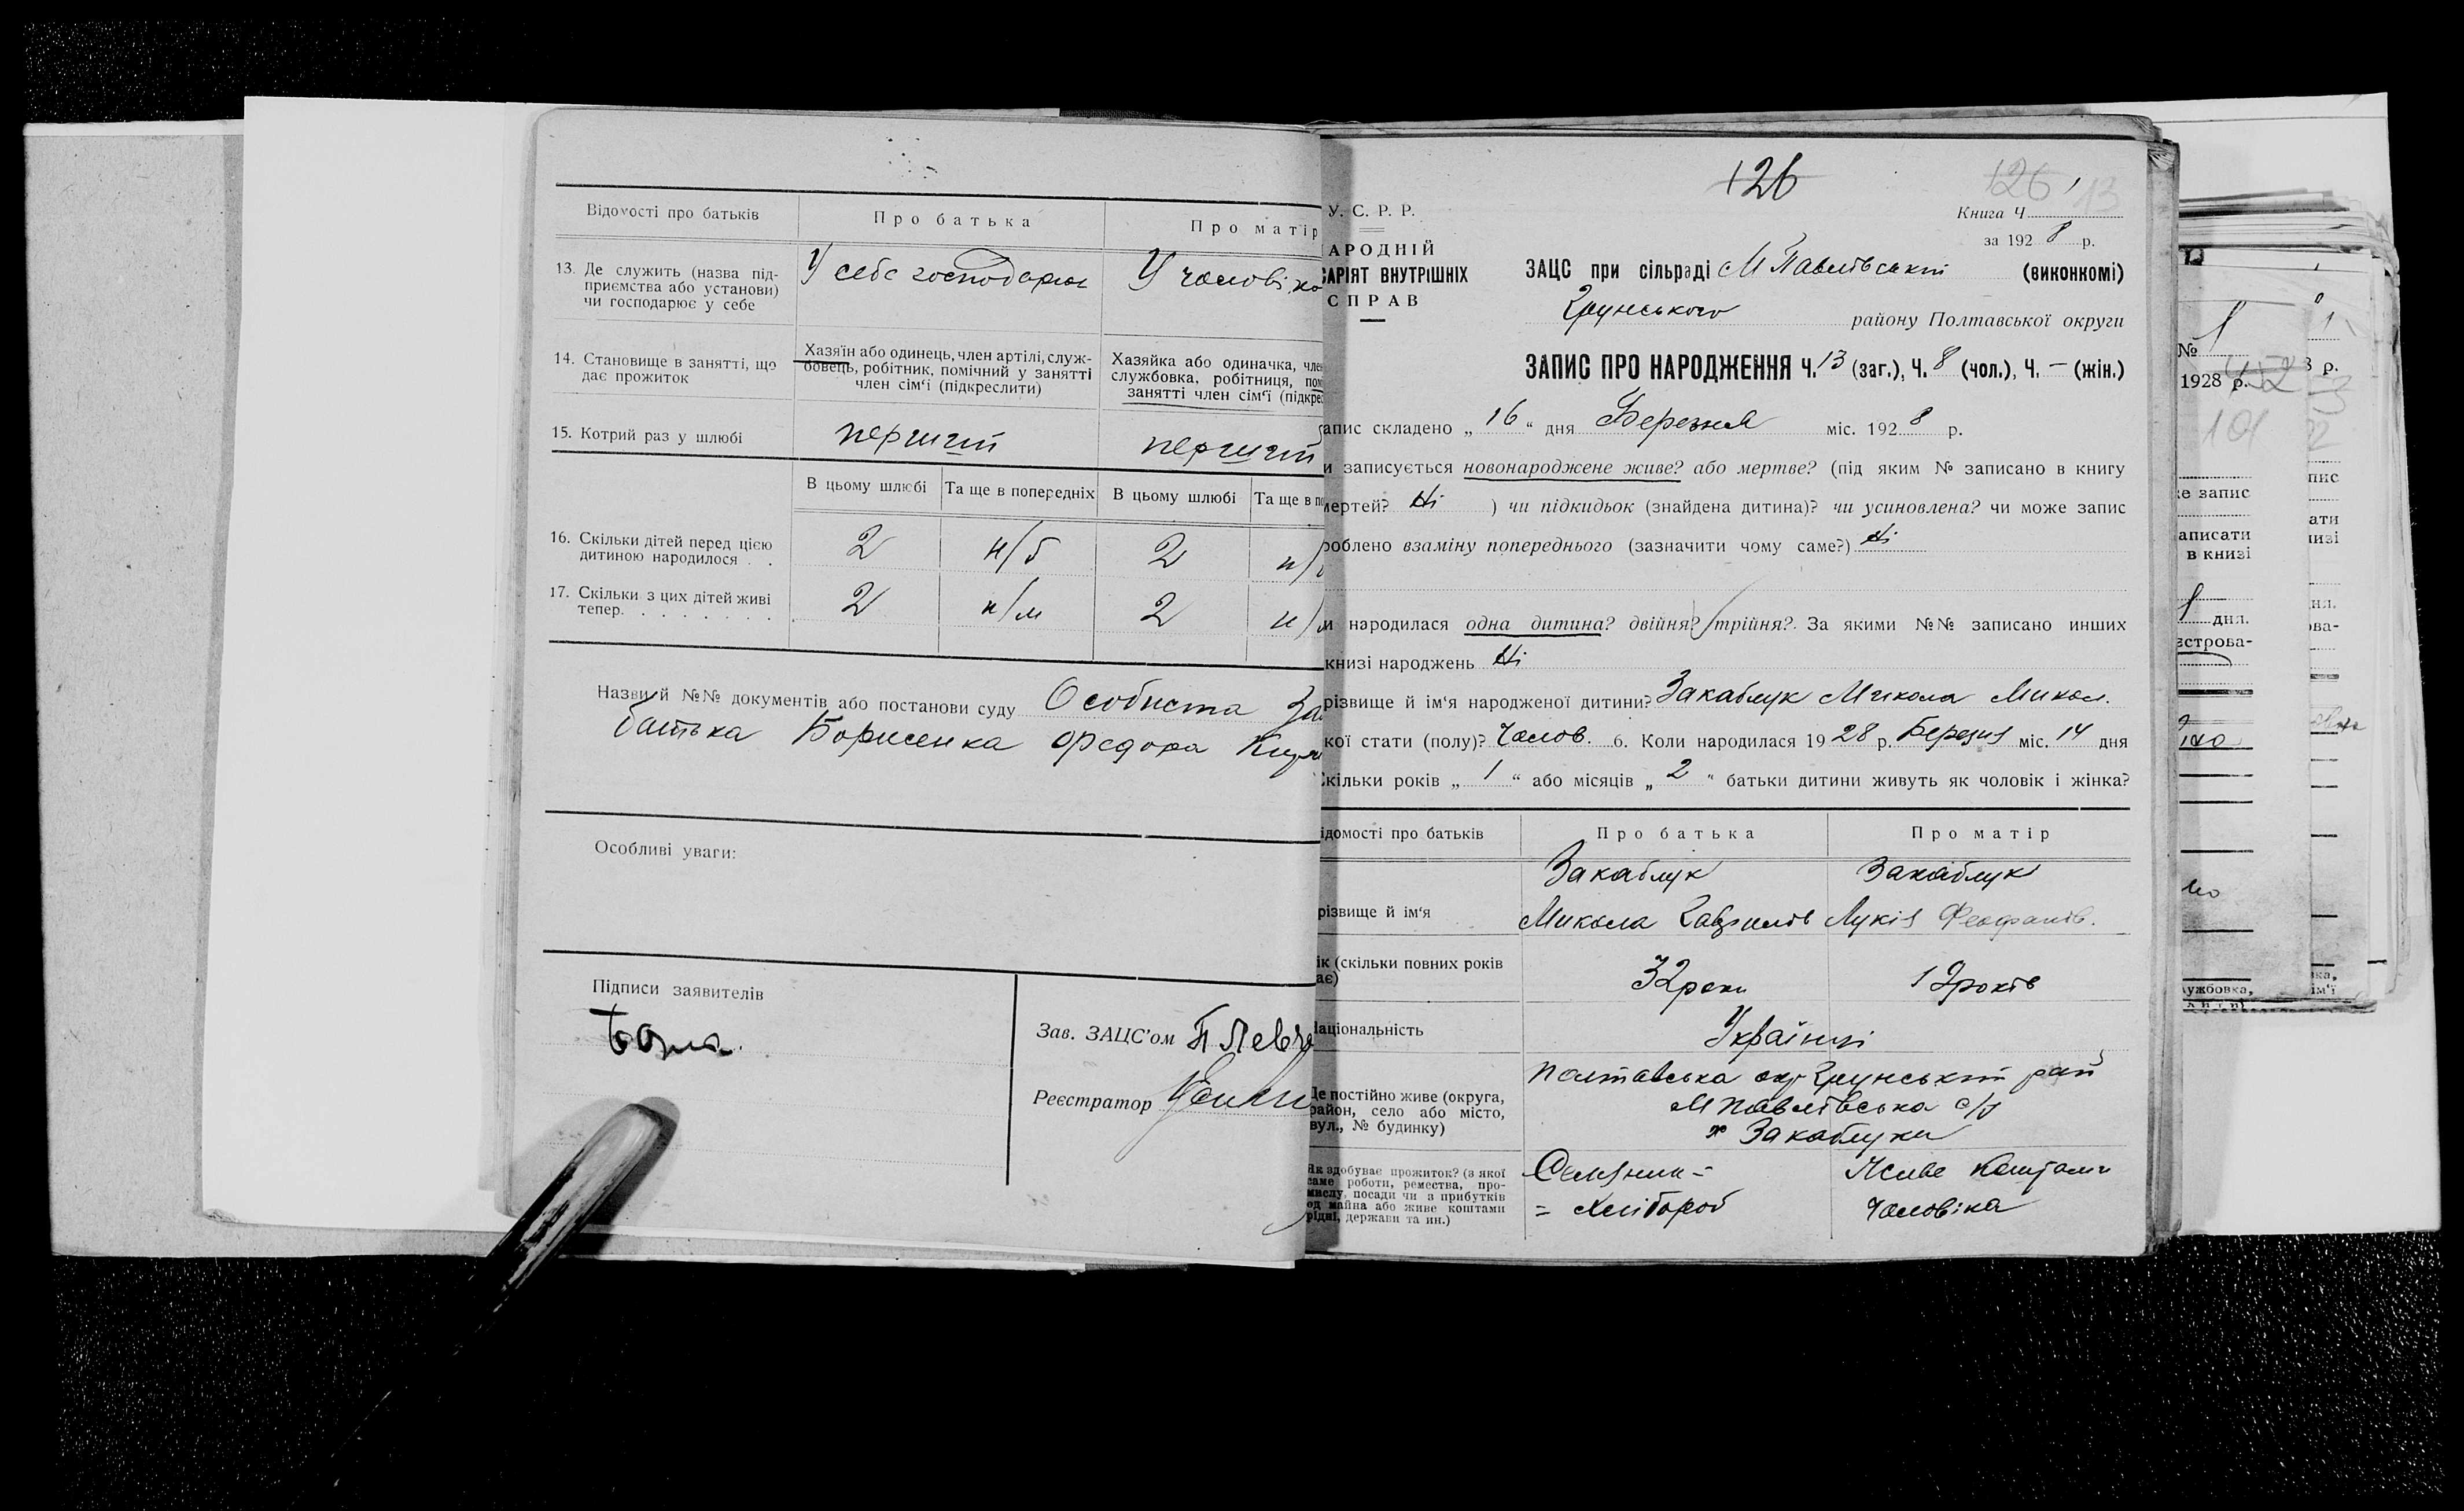 Відомості про батьків
Про батька
Про матір
13. Де служить (назва під-
приємства або установи)
чи господарює у себе
У себе господарює
У чоловіка
14. Становище в занятті, що
дає прожиток
Хазяїн або одинець, член артілі, служ-
бовець, робітник, помічний у занятті
член сім'ї (підкреслити)
Хазяйка або одиначка, чле
службовка, робітниця, пом
занятті член сім'ї (підкре
15. Котрий раз у шлюбі
перший
перший
В цьому шлюбі
Та ще в попередніх
В цьому шлюбі
Та ще в по
16. Скільки дітей перед цією
дитиною народилося . .
2
н/б
2
н/
17. Скільки з цих дітей живі
тепер. . . . . . . .
2
н/м
2
н/
Назви й №№ документів або постанови суду Особиста За
батька Борисенка Федора
Особливі уваги:
Підписи заявителів
Зав. ЗАЦС'ом
Реєстратор
126
126
13
У. С. Р. Р.
АРОДНІЙ
САРІЯТ ВНУТРІШНІХ
СПРАВ
Книга Ч
за 1928 р.
ЗАЦС при сільраді М Павлівській (виконкомі)
Грунського району Полтавської округи
ЗАПИС ПРО НАРОДЖЕННЯ Ч. 13 (заг.), Ч. 8 (чол.), Ч. — (жін.)
апис складено „ 16 " дня Березня міс. 1928 р.
и записується новонароджене живе? або мертве? (під яким № записано в книгу
мертей? Ні ) чи підкидьок (знайдена дитина)? чи усиновлена? чи може запис
роблено взаміну попереднього (зазначити чому саме?) Ні
и народилася одна дитина? двійня? трійня?. За якими №№ записано инших
книзі народжень Ні
різвище й ім'я народженої дитини? Закаблук Микола Микол.
кої стати (полу)? Чолов. 6. Коли народилася 1928 р. Березня міс. 14 дня
кільки років „ 1 " або місяців „ 2 " батьки дитини живуть як чоловік і жінка?
ідомості про батьків
Про батька
Про матір
різвище й ім'я
Закаблук
Микола Гаврилів
Закаблук
Лукія Феофанів.
ік (скільки повних років
ає)
32 роки
19 років
Національність
Українці
Де постійно живе (округа,
район, село або місто,
вул., № будинку)
Полтавська окр Грунський рай
М Павлівська с/р
х Закаблуки
Як здобуває прожиток? (з якої
саме роботи, ремества, про-
мислу, посади чи з прибутків
од майна або живе коштами
рідні, держави та ин.)
Селянин -
= хлібороб
Живе коштами
чоловіка
№ 1
1928 р.
101
е запис
аписати
в книзі
дня.
естрова-
ужбовка,